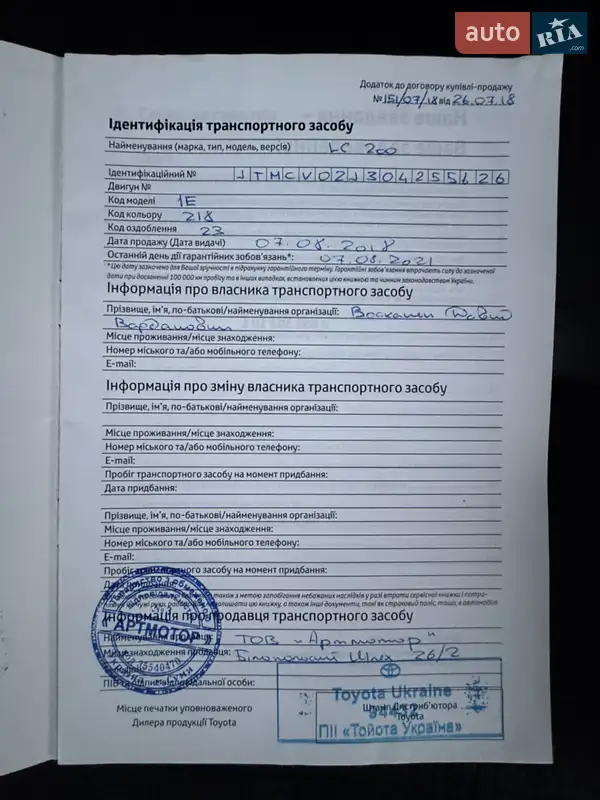 auto RIA .com
Додаток до договору купівлі-продажу
№151/07/18 від 26.07.18
Ідентифікація транспортного засобу
Найменування (марка, тип, модель, версія) LC 200
Ідентифікаційний № JTMCV02J304255626
Двигун №
Код моделі 1E
Код кольору 218
Код оздоблення 23
Дата продажу (Дата видачі) 07.08.2018
Останній день дії гарантійних зобов'язань*: 07.08.2021
* Цю дату зазначено для Вашої зручності в підрахунку гарантійного терміну. Гарантійні зобов'язання втрачають силу до зазначеної
дати при досягненні 100 000 км пробігу та в інших випадках, встановлених цією книжкою та чинним законодавством України.
Інформація про власника транспортного засобу
Прізвище, ім'я, по-батькові/найменування організації: Воскан
Варданович
Місце проживання/місце знаходження:
Номер міського та/або мобільного телефону:
E-mail:
Інформація про зміну власника транспортного засобу
Прізвище, ім'я, по-батькові/найменування організації:
Місце проживання/місце знаходження:
Номер міського та/або мобільного телефону:
E-mail:
Пробіг транспортного засобу на момент придбання:
Дата придбання:
Прізвище, ім'я, по-батькові/найменування організації:
Місце проживання/місце знаходження:
Номер міського та/або мобільного телефону:
E-mail:
Пробіг транспортного засобу на момент придбання:
також з метою запобігання небажаних наслідків у разі втрати сервісної книжки
книжку, а також інші документи, такі як страховий поліс, тощо, в автомобілі
Інформація про продавця транспортного засобу
Найменування ТОВ "Артмотор"
Місцезнаходження продавця: Шлях 26/2
відповідальної особи:
АРТМОТОР
35540470
Місце печатки уповноваженого
Дилера продукції Toyota
Toyota Ukraine
Штамп Дистриб'ютора
Toyota
ПІІ «Тойота Україна»